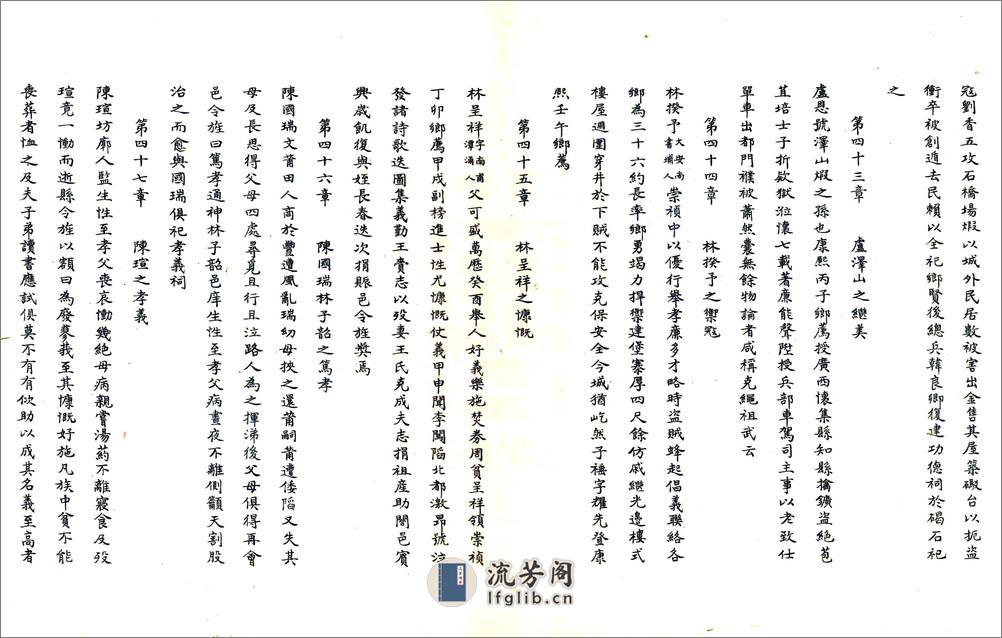 寇劉香五攻石橋場煅以城外民居數被害出金售其屋築礮台以扼盜
衝卒被創遁去民賴以全祀鄉賢後總兵韓良鄉復建功德祠於碣石祀
之
第四十三章　　盧澤山之繼美
盧恩號澤山煅之孫也康熙丙子鄉薦授廣西懷集縣知縣擒鑛盜絕苞
苴培士子折欵獄涖懷七載著廉能聲陞授兵部車駕司主事以老致仕
單車出都門襆被蕭然囊無餘物論者咸稱克繩祖武云
第四十四章　　林揆予之禦寇
林揆予大安南書堝人崇禎中以優行舉孝廉多才略時盜賊蜂起倡義聯絡各
鄉為三十六約長率鄉勇竭力捍禦建堡寨厚四尺餘仿戚繼光邊樓式
樓屋週圍穿井於下賊不能攻克保安全今城猶屹然子禧字耀先登康
熙壬午鄉薦
第四十五章　　林呈祥之慷慨
林呈祥字南甫潭涌人父可盛萬歷癸酉舉人好義樂施焚券周貧呈祥領崇禎
丁卯鄉薦甲戌副榜進士性尤慷慨仗義甲申聞李闖陷北都激昂號泣
發諸詩歌迭圖集義勤王賫志以歿妻王氏克成夫志捐祖產助闔邑賓
興歲飢復與姪長春迭次捐賑邑令旌獎焉
第四十六章　　陳國瑞林子韶之篤孝
陳國瑞文莆田人商於豐遭風亂瑞幼母挾之還莆嗣莆遭倭陷又失其
母及長思得父母四處尋覓且行且泣路人為之揮涕後父母俱得再會
邑令旌曰篤孝通神林子韶邑庠生性至孝父病晝夜不離側籲天割股
治之而愈與國瑞俱祀孝義祠
第四十七章　　陳瑄之孝義
陳瑄坊廓人監生性至孝父喪哀慟幾絕母病親嘗湯葯不離寢食及歿
瑄竟一慟而逝縣令旌以額曰為廢蓼莪至其慷慨好施凡族中貧不能
喪葬者恤之及夫子弟讀書應試俱莫不有有佽助以成其名義至高者
流芳阁
lfglib.cn